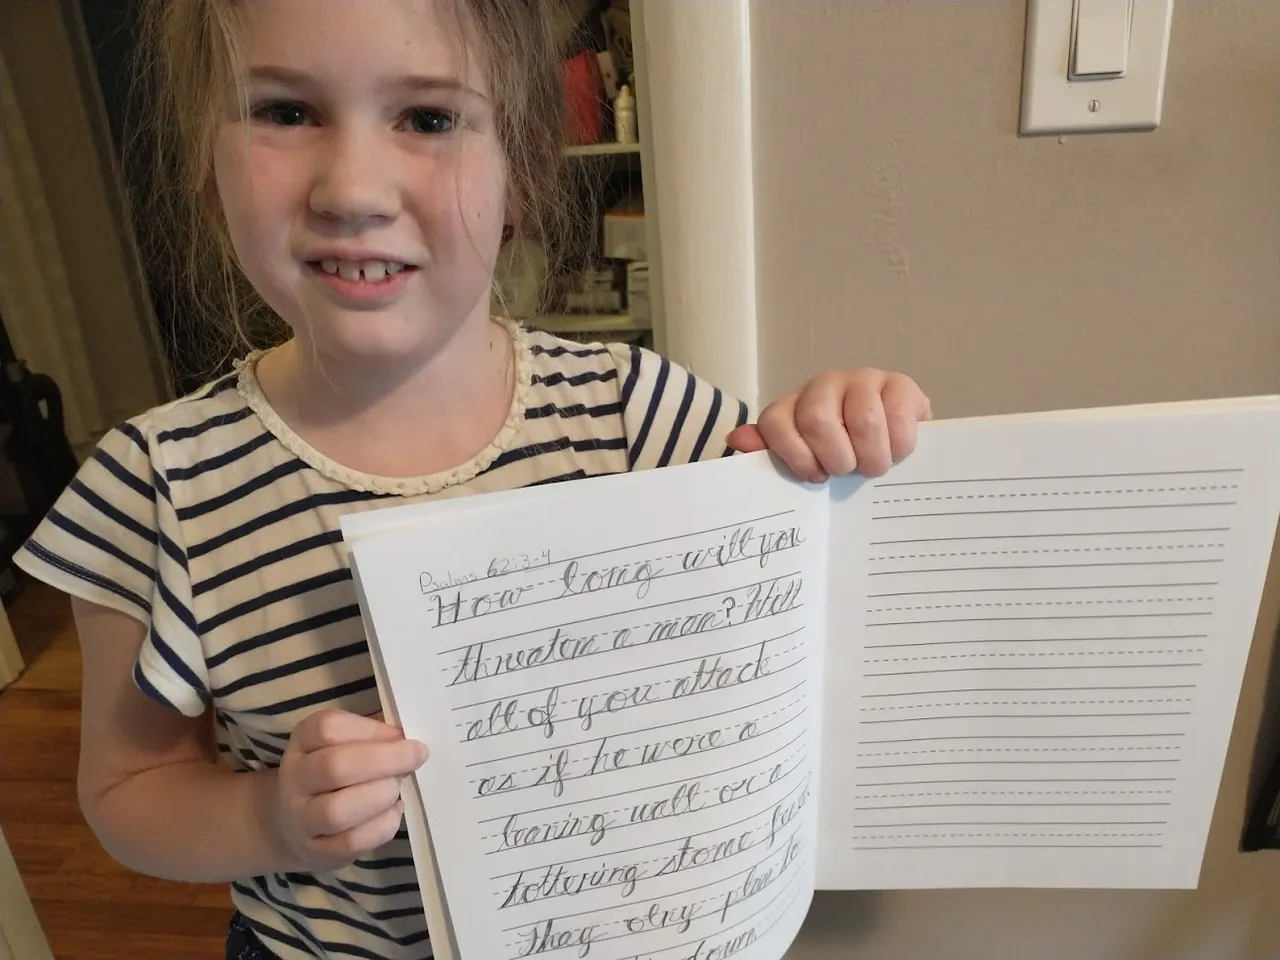 Psalms 62:3-4
How long will you
threaten a man? Will
all of you attack
as if he were a
leaning wall or a
tottering stone
They only plan to
down.